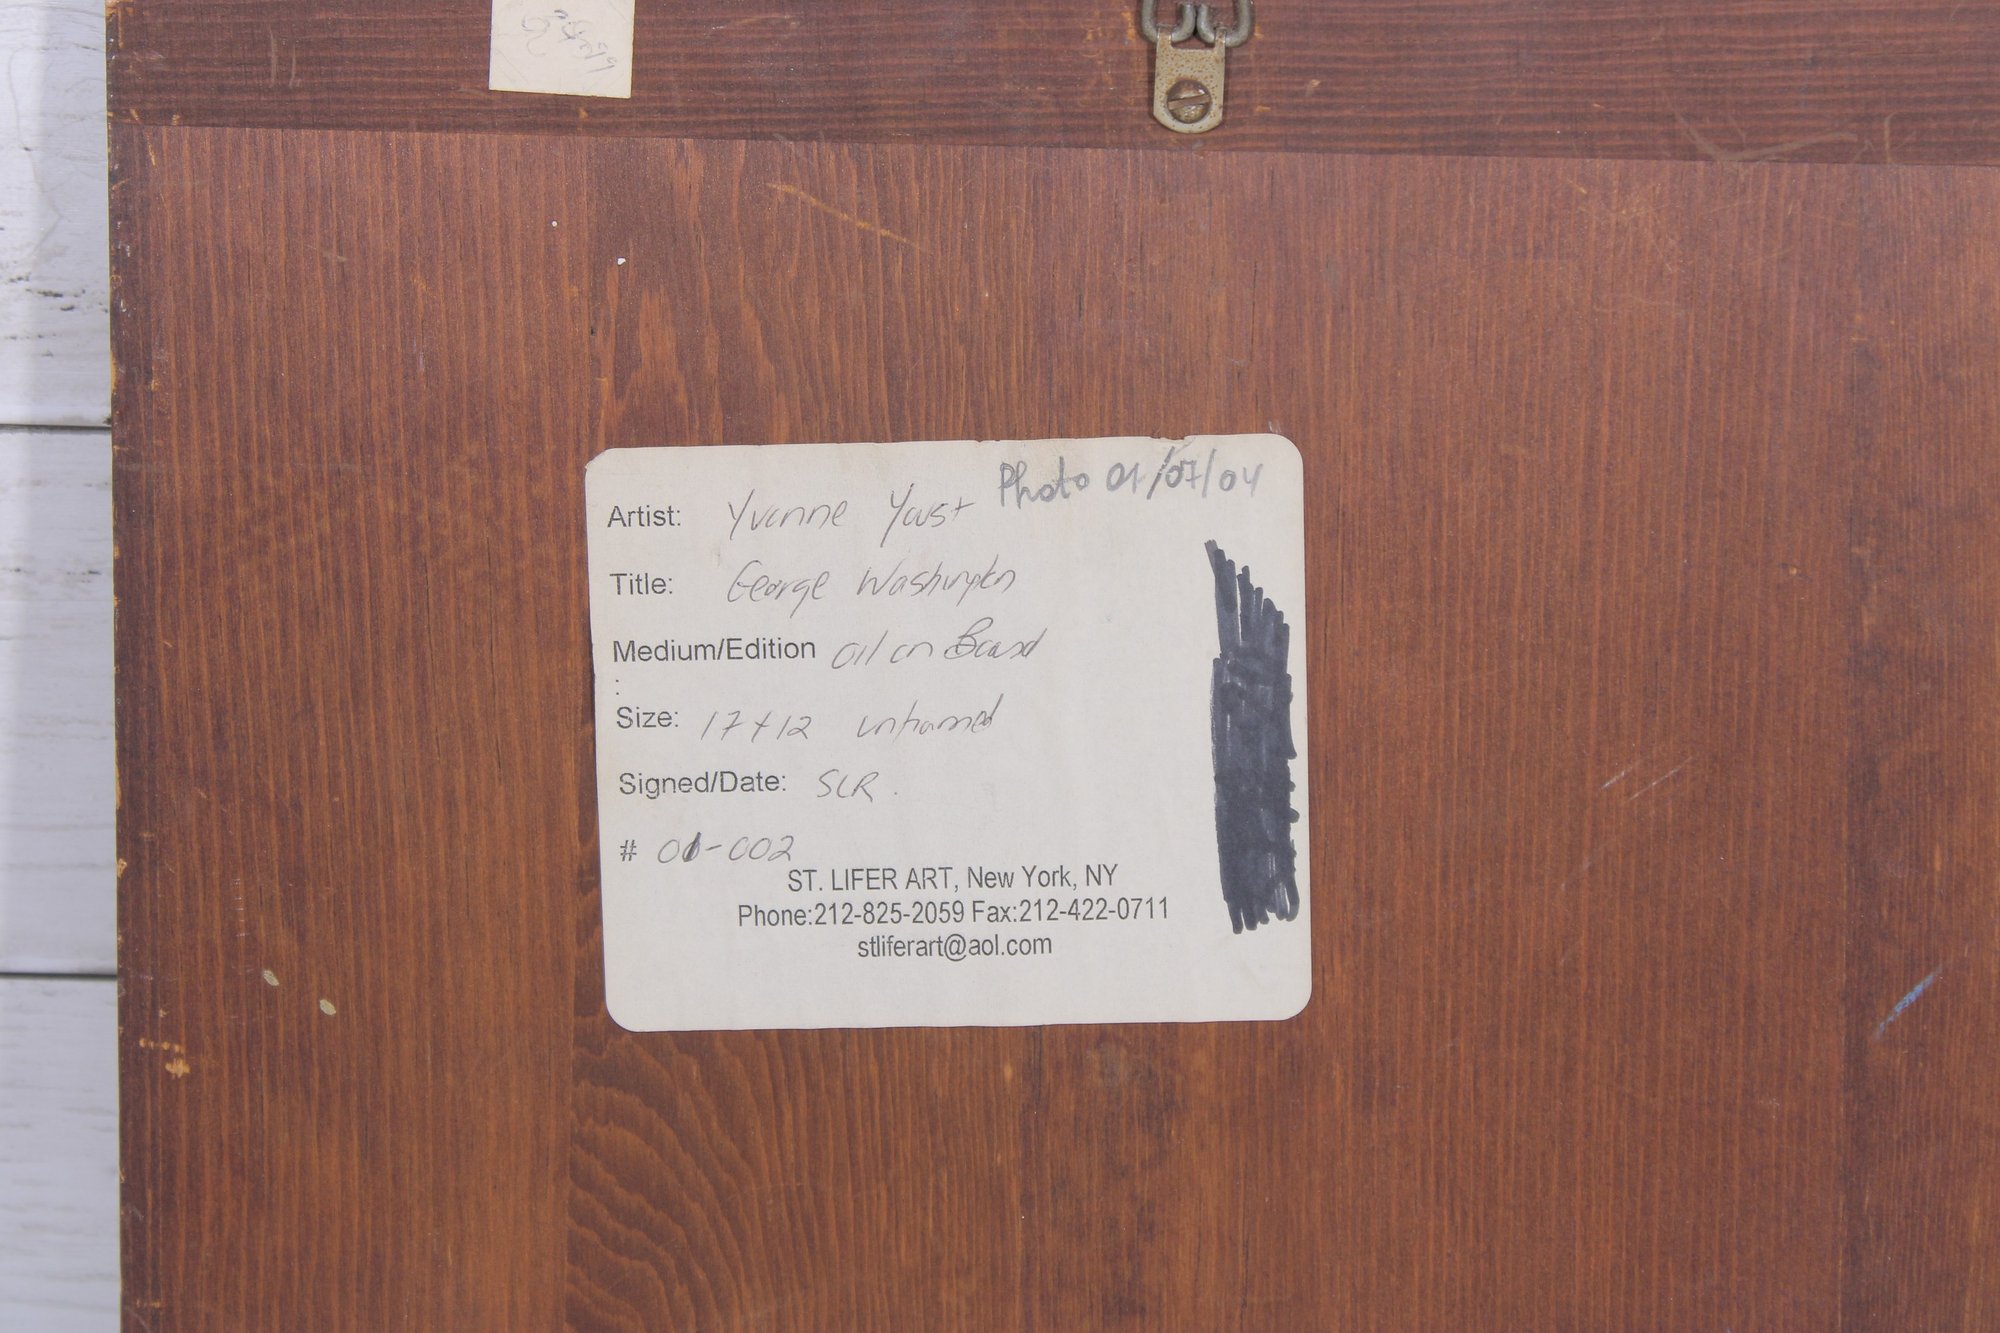 Photo 01/07/04
Artist: Yvonne Youst
Title: George Washington
Medium/Edition oil on Board
:
Size: 17 x 12 unframed
Signed/Date: SLR.
# 01-002
ST. LIFER ART, New York, NY
Phone:212-825-2059 Fax:212-422-0711
stliferart@aol.com